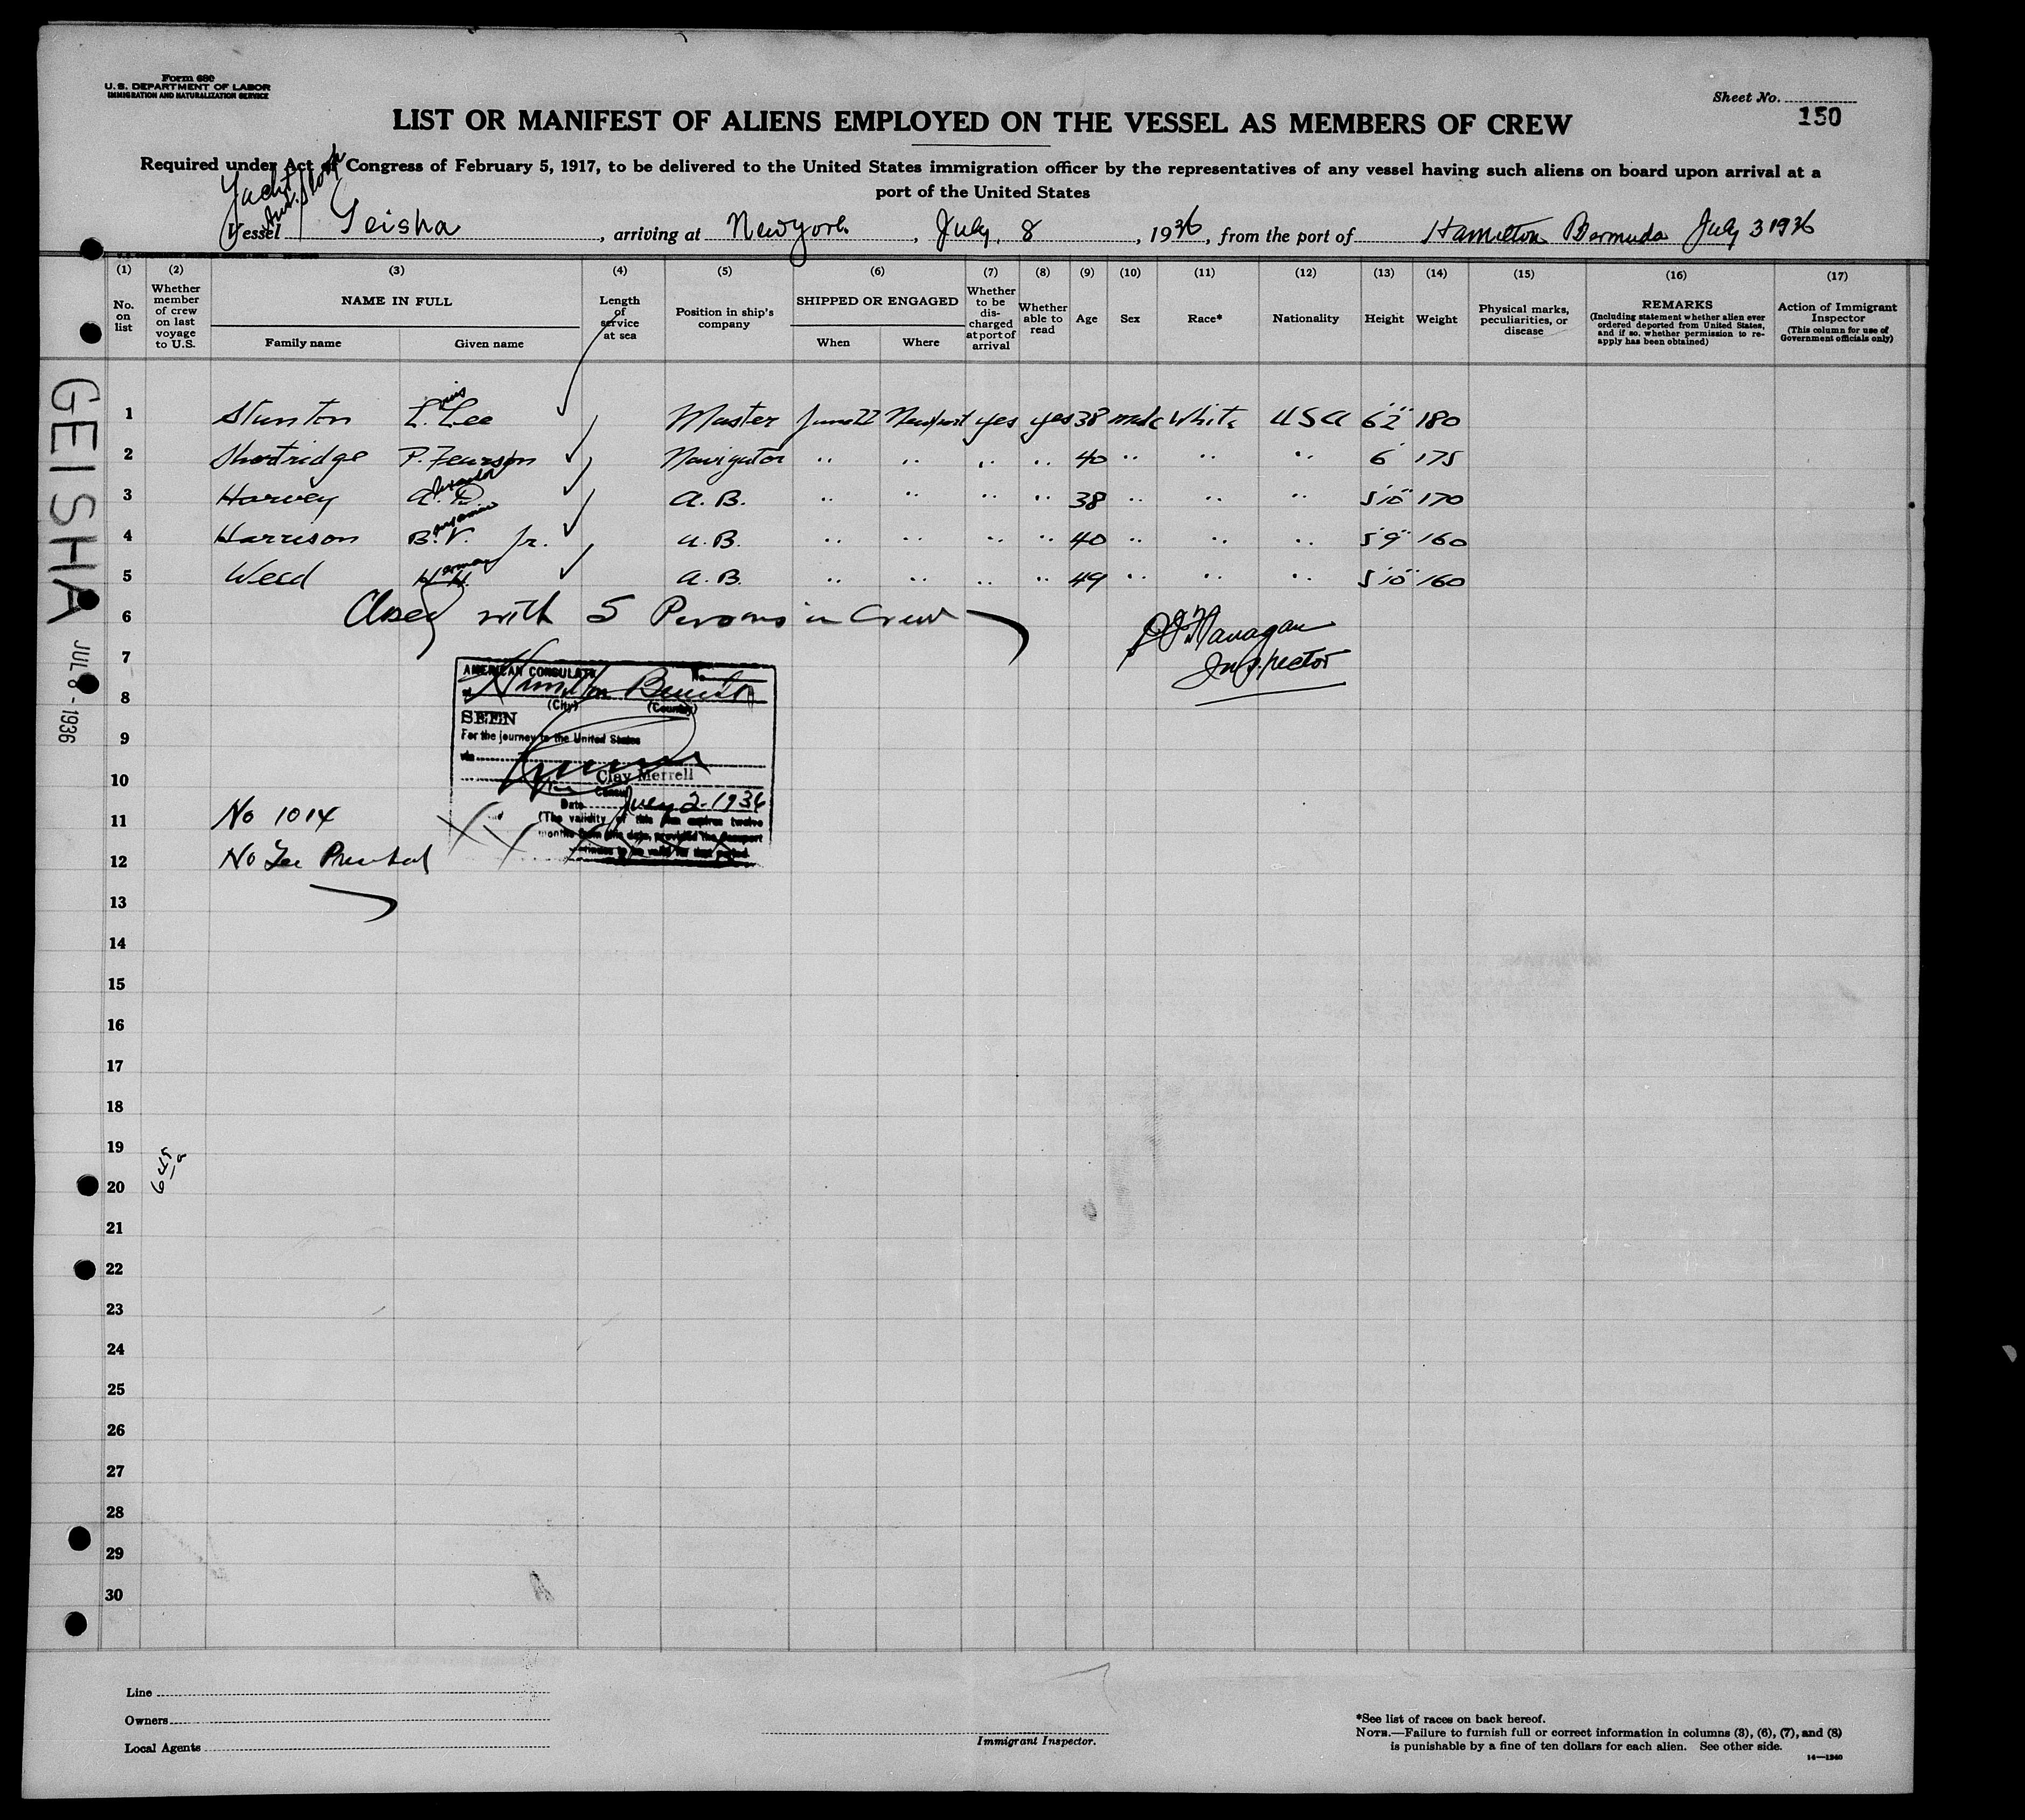 Form 680
U. S. DEPARTMENT OF LABOR
IMMIGRATION AND NATURALIZATION SERVICE
Sheet No.
150
LIST OR MANIFEST OF ALIENS EMPLOYED ON THE VESSEL AS MEMBERS OF CREW
Required under Act of Congress of February 5, 1917, to be delivered to the United States immigration officer by the representatives of any vessel having such aliens on board upon arrival at a
port of the United States
Yacht
Vessel Geisha, arriving at New york, July, 8, 1936, from the port of Hamilton Bermuda July 3 1936
(1) (2) (3) (4) (5) (6) (7) (8) (9) (10) (11) (12) (13) (14) (15) (16) (17)
No. on list
Whether member of crew on last voyage to U.S.
NAME IN FULL
Family name
Given name
Length of service at sea
Position in ship's company
SHIPPED OR ENGAGED
When
Where
Whether to be discharged at port of arrival
Whether able to read
Age
Sex
Race*
Nationality
Height
Weight
Physical marks, peculiarities, or disease
REMARKS
(Including statement whether alien ever ordered deported from United States, and if so, whether permission to reapply has been obtained)
Action of Immigrant Inspector
(This column for use of Government officials only)
1 Stanton L. Lee Master June 22 Newport yes yes 38 male White USA 6'2" 180
2 Shortridge P. Fearson Navigator " " " " 40 " " " 6' 175
3 Harvey A. D. A. B. " " " " 38 " " " 5'10" 170
4 Harrison B. V. Jr. A. B. " " " " 40 " " " 5'9" 160
5 Weed H. H. A. B. " " " " 49 " " " 5'10" 160
6 Closed with 5 Persons in Crew
Flanagan
Inspector
7
8
9
10
11 No 1014
12 No Fee Presented
13
14
15
16
17
18
19
20
21
22
23
24
25
26
27
28
29
30
GEISHA
JUL 8 - 1936
AMERICAN CONSULATE
No.
at Hamilton Bermuda
(City) (Country)
SEEN
For the journey to the United States
via
Clay Merrell
Consul
Date July 2-1936
(The validity of this visa expires twelve
months from this date, provided the passport
continues to be valid for that period.
Line
Owners
Local Agents
Immigrant Inspector.
*See list of races on back hereof.
NOTE.—Failure to furnish full or correct information in columns (3), (6), (7), and (8)
is punishable by a fine of ten dollars for each alien. See other side.
14—1240